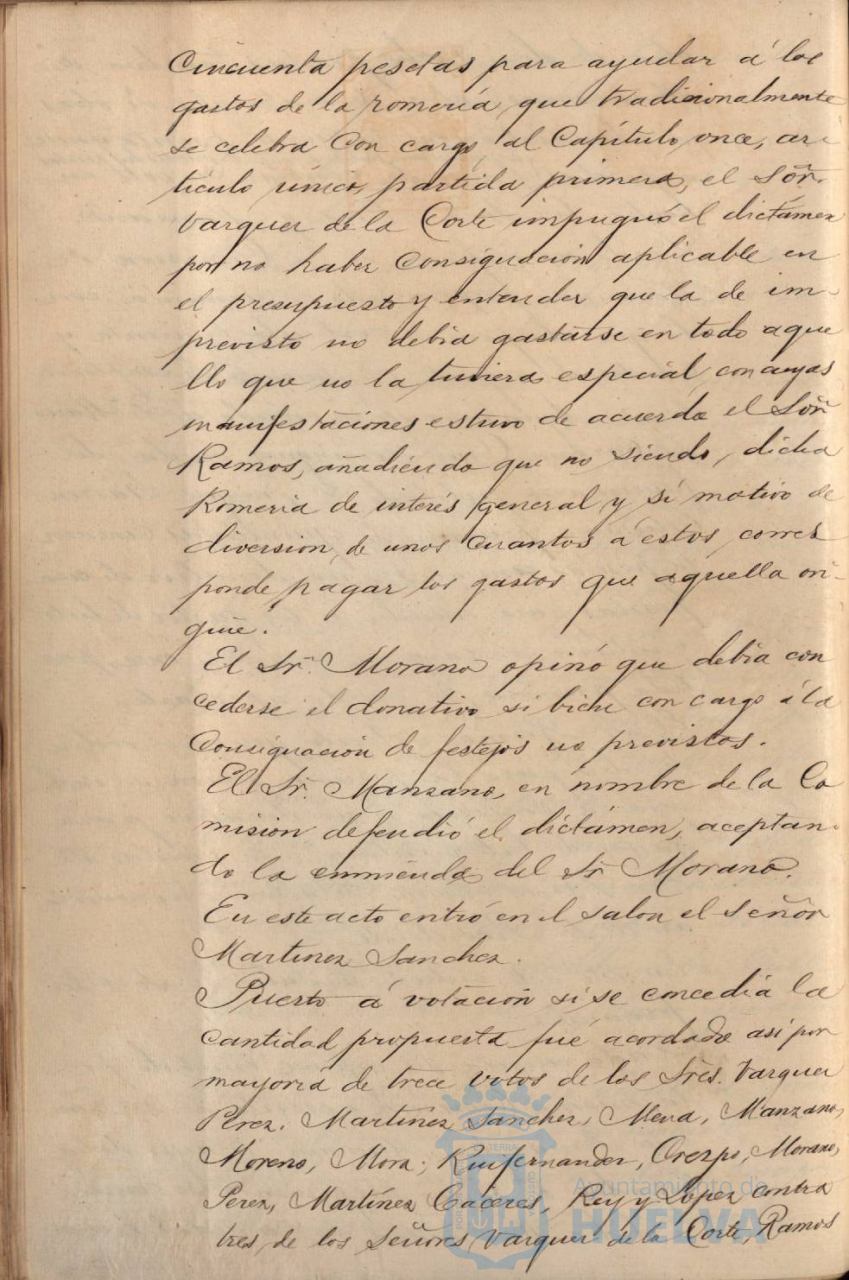 Cincuenta pesetas para ayudar á los
gastos de la romería que tradicionalmente
se celebra con cargo al Capítulo once, ar-
tículo único, partida primera, el Señr.
Varquer de la Corte impugnó el dictámen
por no haber Consignación aplicable en
el presupuesto y entender que la de im-
previsto no debia gastarse en todo aque
llo que no la tuviera especial con cuyas
manifestaciones estuvo de acuerdo el Señr.
Ramos, añadiendo que no siendo, dicha
Romeria de interés general y sí motivo de
diversion, de unos cuantos á estos, corres
ponde pagar los gastos que aquella ori-
gine.
El Sr. Morano opinó que debia con
cederse el donativo si bien con cargo á la
Consignación de festejos no previstos.
El Sr. Manzano, en nombre de la Co
mision defendió el dictámen, aceptan-
do la enmienda del Sr Morano.
En este acto entró en el salon el Señor
Martinez Sanchez.
Puesto á votación si se concedia la
cantidad propuesta fué acordado asi por
mayoria de trece votos de los Sres. Varquer
Perez. Martinez Sanchez, Mena, Manzano,
Moreno, Mora, Ruifernandez, Crespo, Morano,
Perez, Martínez Caceres, Rey y Lopez contra
tres, de los Señores Varquer de la Corte, Ramos
Ayuntamiento de
HUELVA